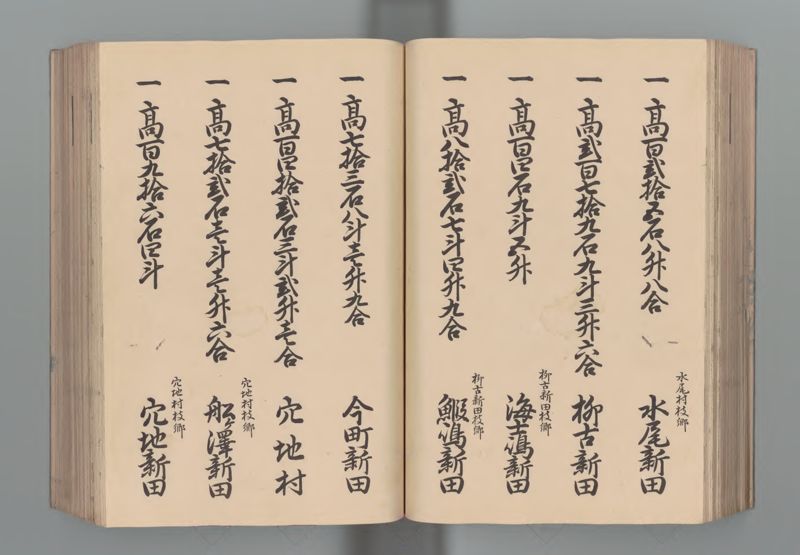 一高百弐拾五石八升八合
水尾村枝郷
水尾新田
一高弐百七拾九石九斗三升六合
柳古新田
一高百四石九斗五升
柳古新田枝郷
海士嶋新田
一高八拾弐石七斗四升九合
柳古新田枝郷
鰕嶋新田
一高七拾三石八斗壱升九合
今町新田
一高百四拾弐石三斗弐升壱合
穴地村
一高七拾弐石壱斗壱升六合
穴地村枝郷
舩ヶ澤新田
一高百九拾六石四斗
穴地村枝郷
穴地新田